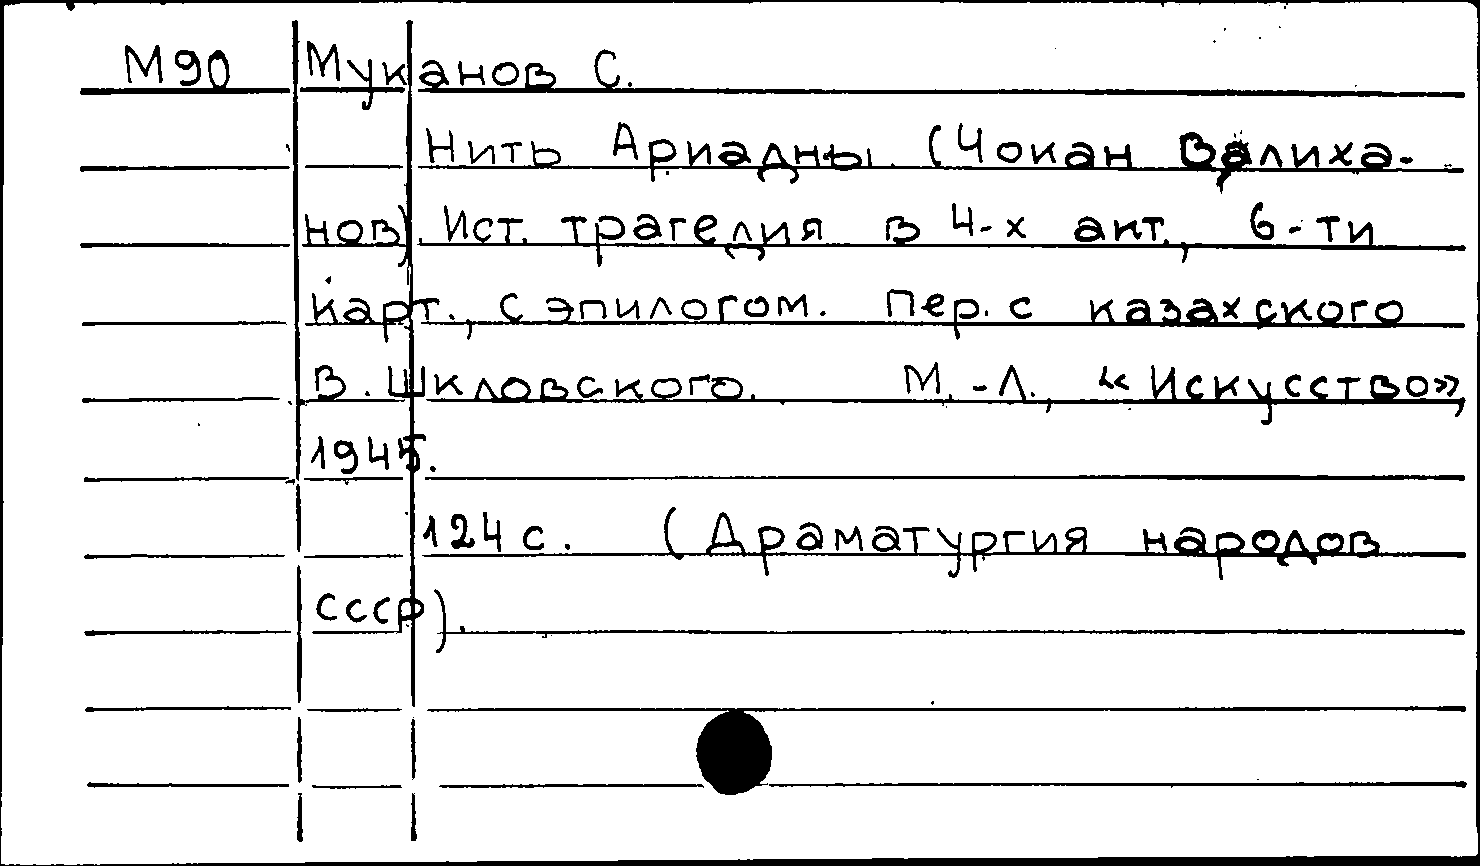 М90 Муканов С.
Нить Ариадны. (Чокан Валиха-
нов). Ист. трагедия в 4-х акт., 6-ти
карт., с эпилогом. Пер. с казахского
В. Шкловского. М.-Л., «Искусство»,
1945.
124 с. (Драматургия народов
СССР).